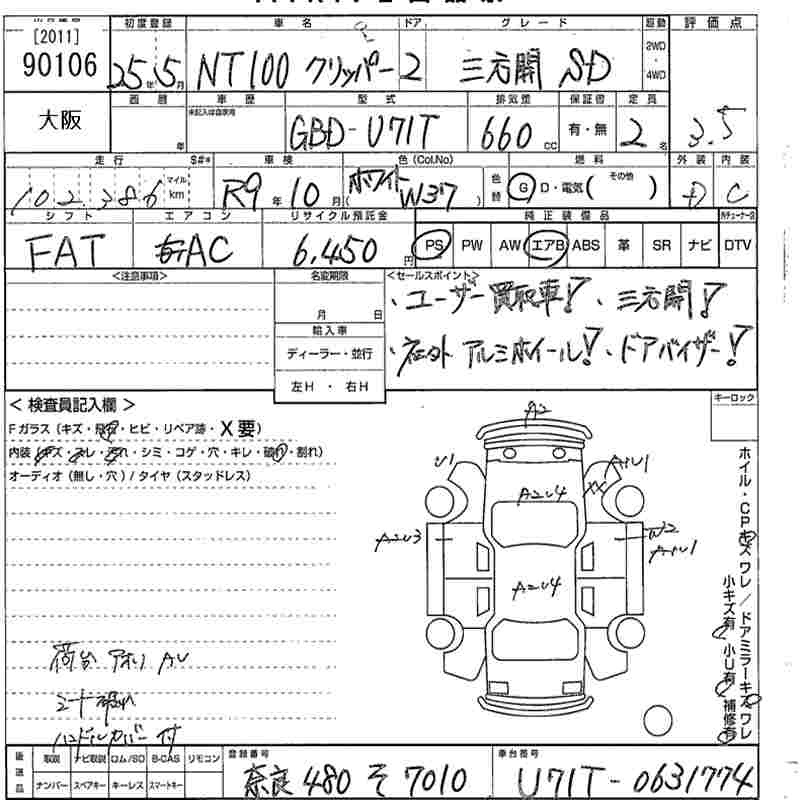 [2011]
90106
大阪
初度登録 車名 ドア グレード 駆動 評価点
25年5月 NT100 クリッパー 2 三方開 SD 2WD・4WD 3.5
西暦 年 車歴 未記入は自家用 型式 排気量 保証書 定員
GBD-U71T 660cc 有・無 2名
走行 S#* 車検 色(Col.No) 燃料 外装 内装
102,386 マイル km R9年10月 ホワイト (W37) 色替 G D・電気( その他 ) D C
シフト エアコン リサイクル預託金 純正装備品
FAT AC 6,450円 PS PW AW エアB ABS 革 SR ナビ DTV
<注意事項> 名変期限 <セールスポイント>
月 日
輸入車
ディーラー・並行
左H・右H
・ユーザー買取車! ・三方開!
・社外アルミホイール! ・ドアバイザー!
<検査員記入欄> キーロック
Fガラス(キズ・飛石・ヒビ・リペア跡・X要)
内装(キズ・スレ・汚れ・シミ・コゲ・穴・キレ・破れ・割れ)
オーディオ(無し・穴)/タイヤ(スタッドレス)
A2
U1
AU1
A2U4
XX
A2U3
W2
AU1
A2U4
ホイル・CPキズワレ/ドアミラーキズワレ
小キズ有 小U有 補修有
荷台 アオリ AU
シート破れ
ハンドルカバー付
後送品 取説 ナビ取説 ロム/SD B-CAS リモコン
ナンバー スペアキー キーレス スマートキー
登録番号 奈良 480 そ 7010
車台番号 U71T-0631774